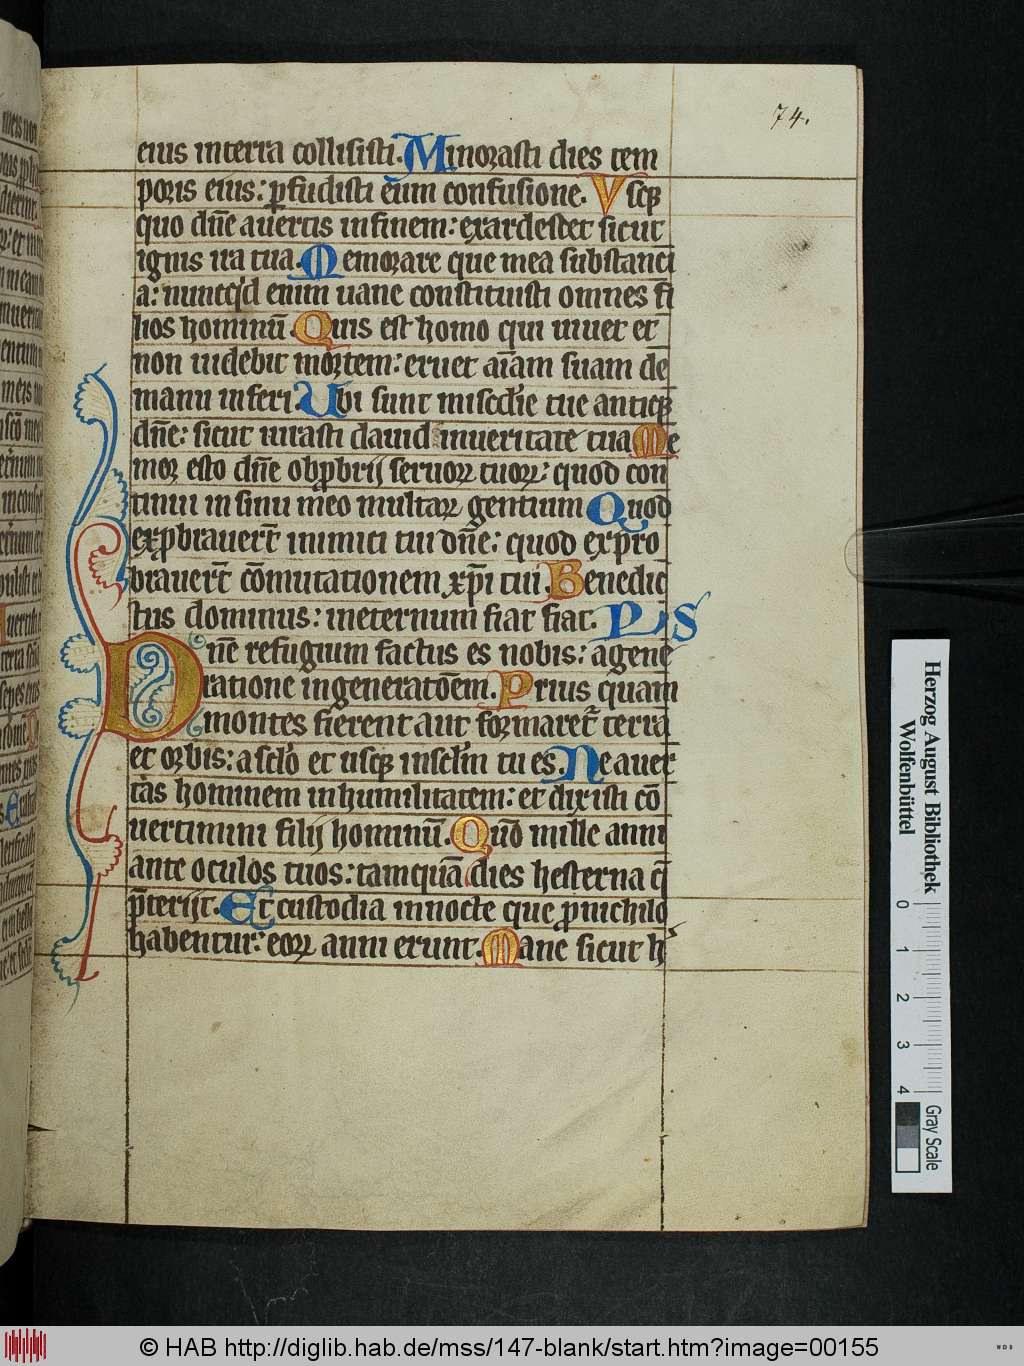 74.
eius in terra collisisti. Minorasti dies tem
poris eius: ꝑfudisti eum confusione. Vsqꝫ
quo dn̄e auertis in finem: exardescet sicut
ignis ira tua. Memorare que mea substanci
a: nunc eni͂m uane constituisti omnes fi
lios hominū. Quis est homo qui uiuet et
non uidebit mortem: eruet aīam suam de
manu inferi. Ubi sunt miscd'ie tue antiqꝫ
dn̄e: sicut iurasti dauid in ueritate tua Me
mor esto dn̄e obꝓbrij seruoꝝ tuoꝝ: quod con
tinui in sinu meo multaꝝ gentium Quod
exꝓbrauer̄t inimici tui dn̄e: quod expro
brauer̄t cōmutationem xp̄i tui. Benedic
tus dominus: in eternum fiat fiat. PS
Dnē refugium factus es nobis: a gene
ratione in generatōem. Prius quam
montes fierent aut formaret᷑ terra
et orbis: a sclō et usqꝫ in sclm̄ tu es. Ne auer
tas hominem in humilitatem: et dixisti cō
uertimini filij hominū. Qūo mille anni
ante oculos tuos: tamquā dies hesterna q̄
p̄terijt. Et custodia in nocte que ꝓ nichilo
habentur: eoꝝ anni erunt. Mane sicut h'
Herzog August Bibliothek
Wolfenbüttel
0 1 2 3 4
Gray Scale
© HAB http://diglib.hab.de/mss/147-blank/start.htm?image=00155